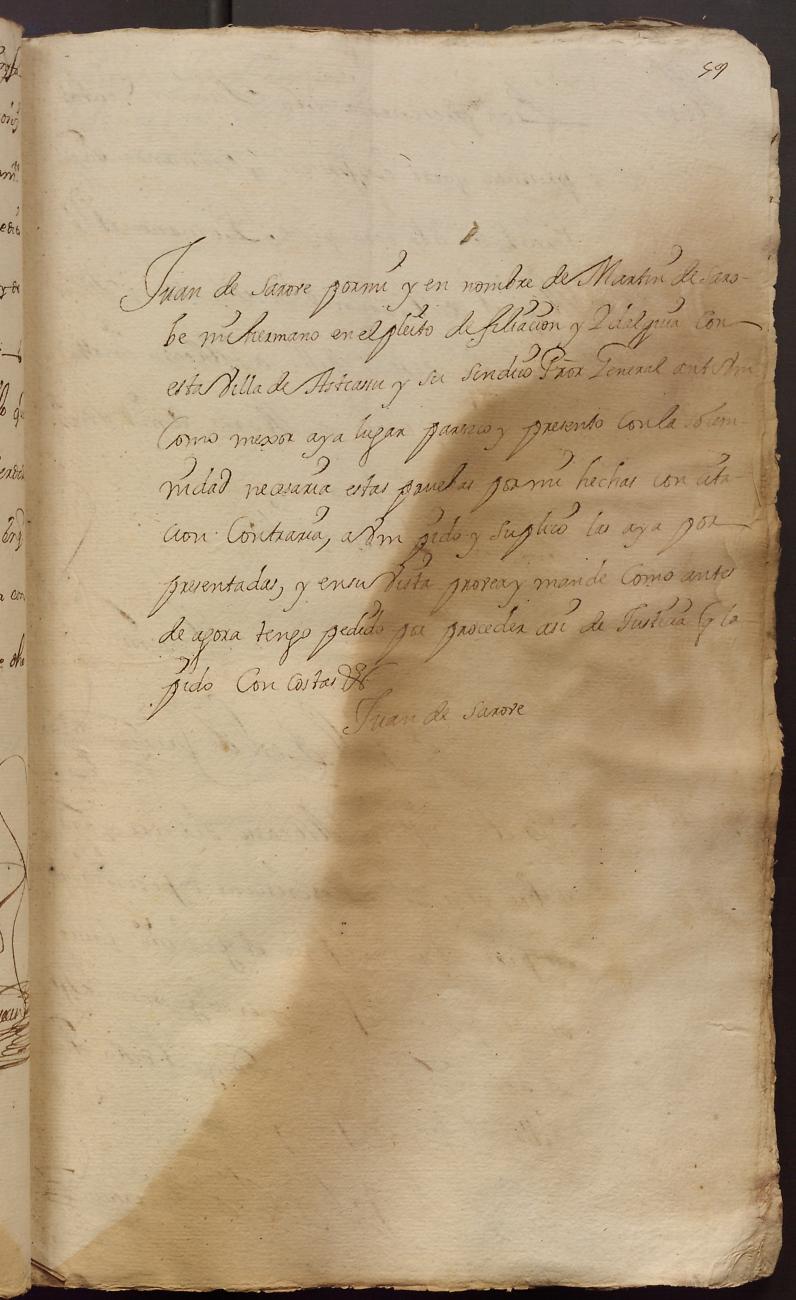 59
Juan de Sarove por mi y en nombre de Martin de Saro-
be mi hermano en el pleito de filiacion y Idalguia con
esta Villa de Asteasu y su sindico Pror General ante Vm
Como mexor aya lugar paresco y presento con la solem-
nidad necesaria estas pruebas por mi hechas con cita-
cion Contraria, a Vm pido y suplico las aya por
presentadas, y en su Vista provea y mande Como antes
de agora tengo pedido por proceder asi de Justicia q la
pido Con costas &
Juan de Sarove